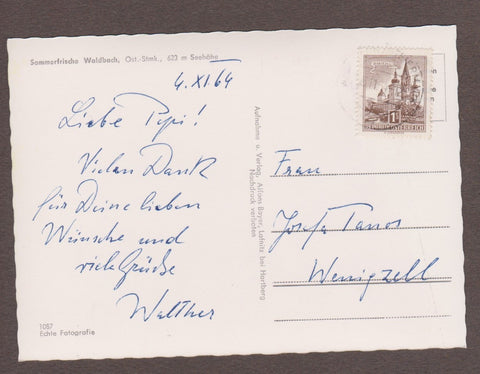 Sommerfrische Waldbach, Ost.-Stmk., 623 m Seehöhe
4. XI 64
Liebe Pepi!
Vielen Dank
für Deine lieben
Wünsche und
viele Grüße
Walther
1057
Echte Fotografie
Aufnahme u. Verlag, Alfons Bayer, Lafnitz bei Hartberg
Nachdruck verboten
1
Frau
Josefa
Wenigzell